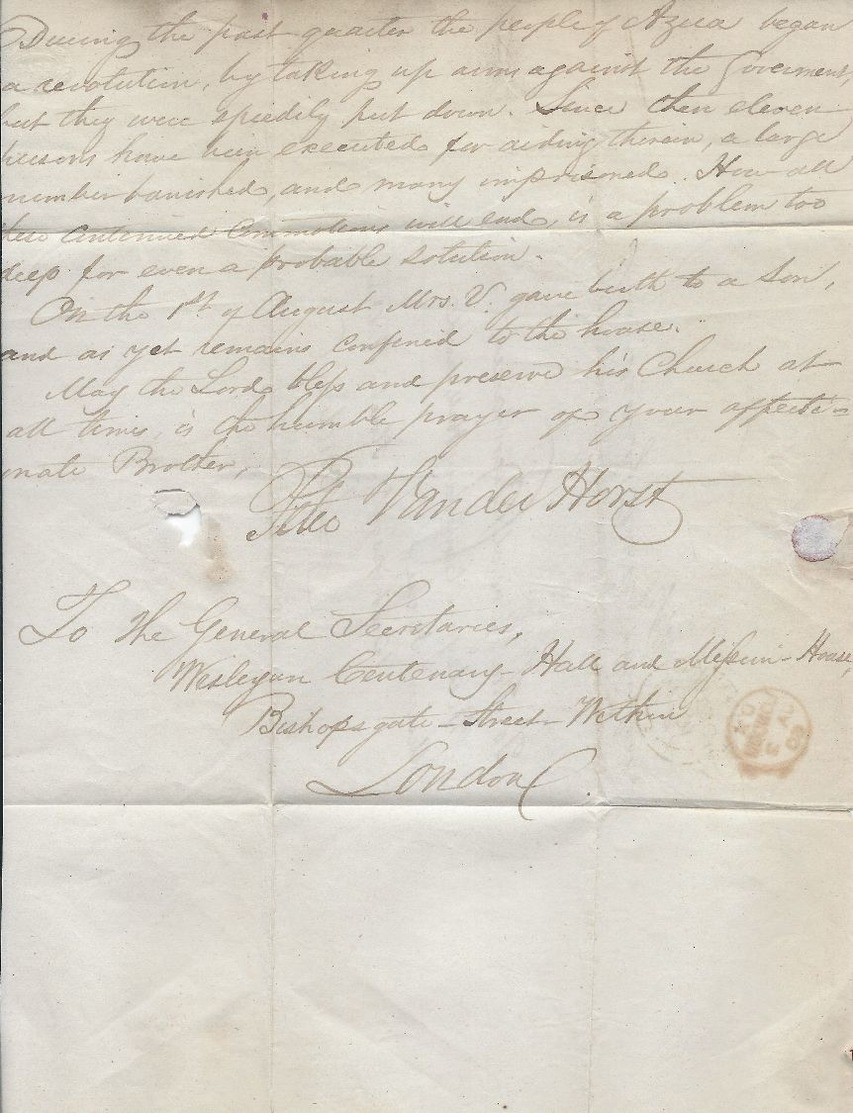 During the past quarter the people of Azua began
a revolution, by taking up arms against the Goverment,
but they were speedily put down. Since then eleven
persons have been executed for aiding therein, a large
number banished, and many imprisoned. How all
these continued commotions will end, is a problem too
deep for even a probable solution.
On the 1st of August Mrs. V. gave birth to a Son,
and as yet remains confined to the house.
May the Lord bless and preserve his Church at
all times, is the humble prayer of your affecti=
onate Brother,
Vander Horst
To the General Secretaries,
Wesleyan Centenary-Hall and Mission-House,
Bishopsgate-Street-Within
London.